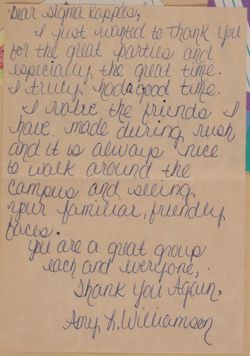 Dear Sigma Kappas,
I just wanted to thank you
for the great parties and
especially the great time.
I truly had a good time.
I value the friends I
have made during rush
and it is always nice
to walk around the
campus and seeing
your familiar, friendly
faces.
You are a great group
each and everyone,
Thank You Again,
Amy L. Williamson